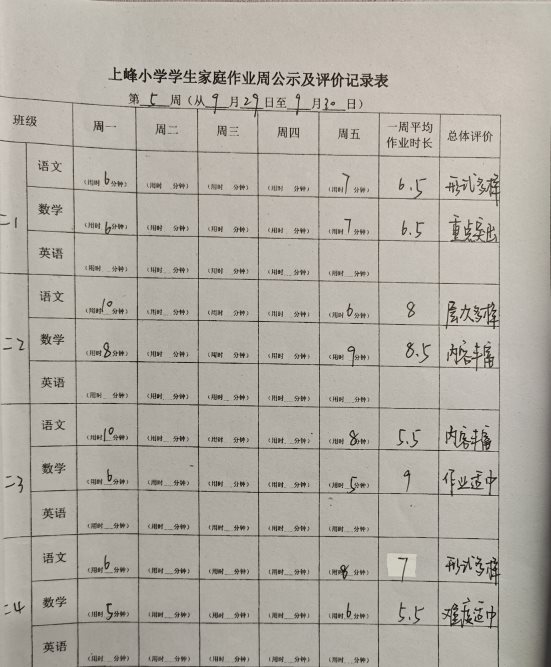 上峰小学学生家庭作业周公示及评价记录表
第 5 周（从 9 月 29 日至 9 月 30 日）
班级 周一 周二 周三 周四 周五 一周平均作业时长 总体评价
二1
语文 （用时 6 分钟） （用时 分钟） （用时 分钟） （用时 分钟） （用时 7 分钟） 6.5 形式多样
数学 （用时 6 分钟） （用时 分钟） （用时 分钟） （用时 分钟） （用时 7 分钟） 6.5 重点突出
英语 （用时 分钟） （用时 分钟） （用时 分钟） （用时 分钟） （用时 分钟）
二2
语文 （用时 10 分钟） （用时 分钟） （用时 分钟） （用时 分钟） （用时 6 分钟） 8 层次多样
数学 （用时 8 分钟） （用时 分钟） （用时 分钟） （用时 分钟） （用时 9 分钟） 8.5 内容丰富
英语 （用时 分钟） （用时 分钟） （用时 分钟） （用时 分钟） （用时 分钟）
二3
语文 （用时 10 分钟） （用时 分钟） （用时 分钟） （用时 分钟） （用时 8 分钟） 5.5 内容丰富
数学 （用时 6 分钟） （用时 分钟） （用时 分钟） （用时 分钟） （用时 5 分钟） 9 作业适中
英语 （用时 分钟） （用时 分钟） （用时 分钟） （用时 分钟） （用时 分钟）
二4
语文 （用时 6 分钟） （用时 分钟） （用时 分钟） （用时 分钟） （用时 8 分钟） 7 形式多样
数学 （用时 5 分钟） （用时 分钟） （用时 分钟） （用时 分钟） （用时 6 分钟） 5.5 难度适中
英语 （用时 分钟） （用时 分钟） （用时 分钟） （用时 分钟） （用时 分钟）